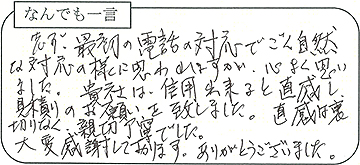 なんでも一言
先ず、最初の電話の対応でごく自然
な対応の様に思われますが、心よく思い
ました。貴社は、信用出来ると直感し、
見積りのお願いを致しました。直感は裏
切りなく、親切丁寧でした。
大変感謝しております。ありがとうございました。